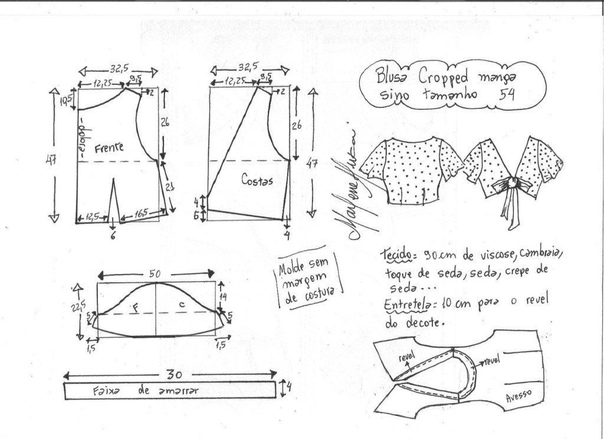 Blusa Cropped manga
sino tamanho 54
32,5
12,25
9,5
2
10,5
dobra
Frente
26
47
23
12,5
16,5
6
32,5
12,25
9,5
2
26
47
Costas
4
6
4
Marlene Mukai
50
22,5
14
F
C
5
5
1,5
1,5
Molde sem
margem
de costura
Tecido= 90cm de viscose, cambraia,
toque de seda, seda, crepe de
seda...
Entretela= 10 cm para o revel
do decote.
30
Faixa de amarrar
4
revel
revel
Avesso